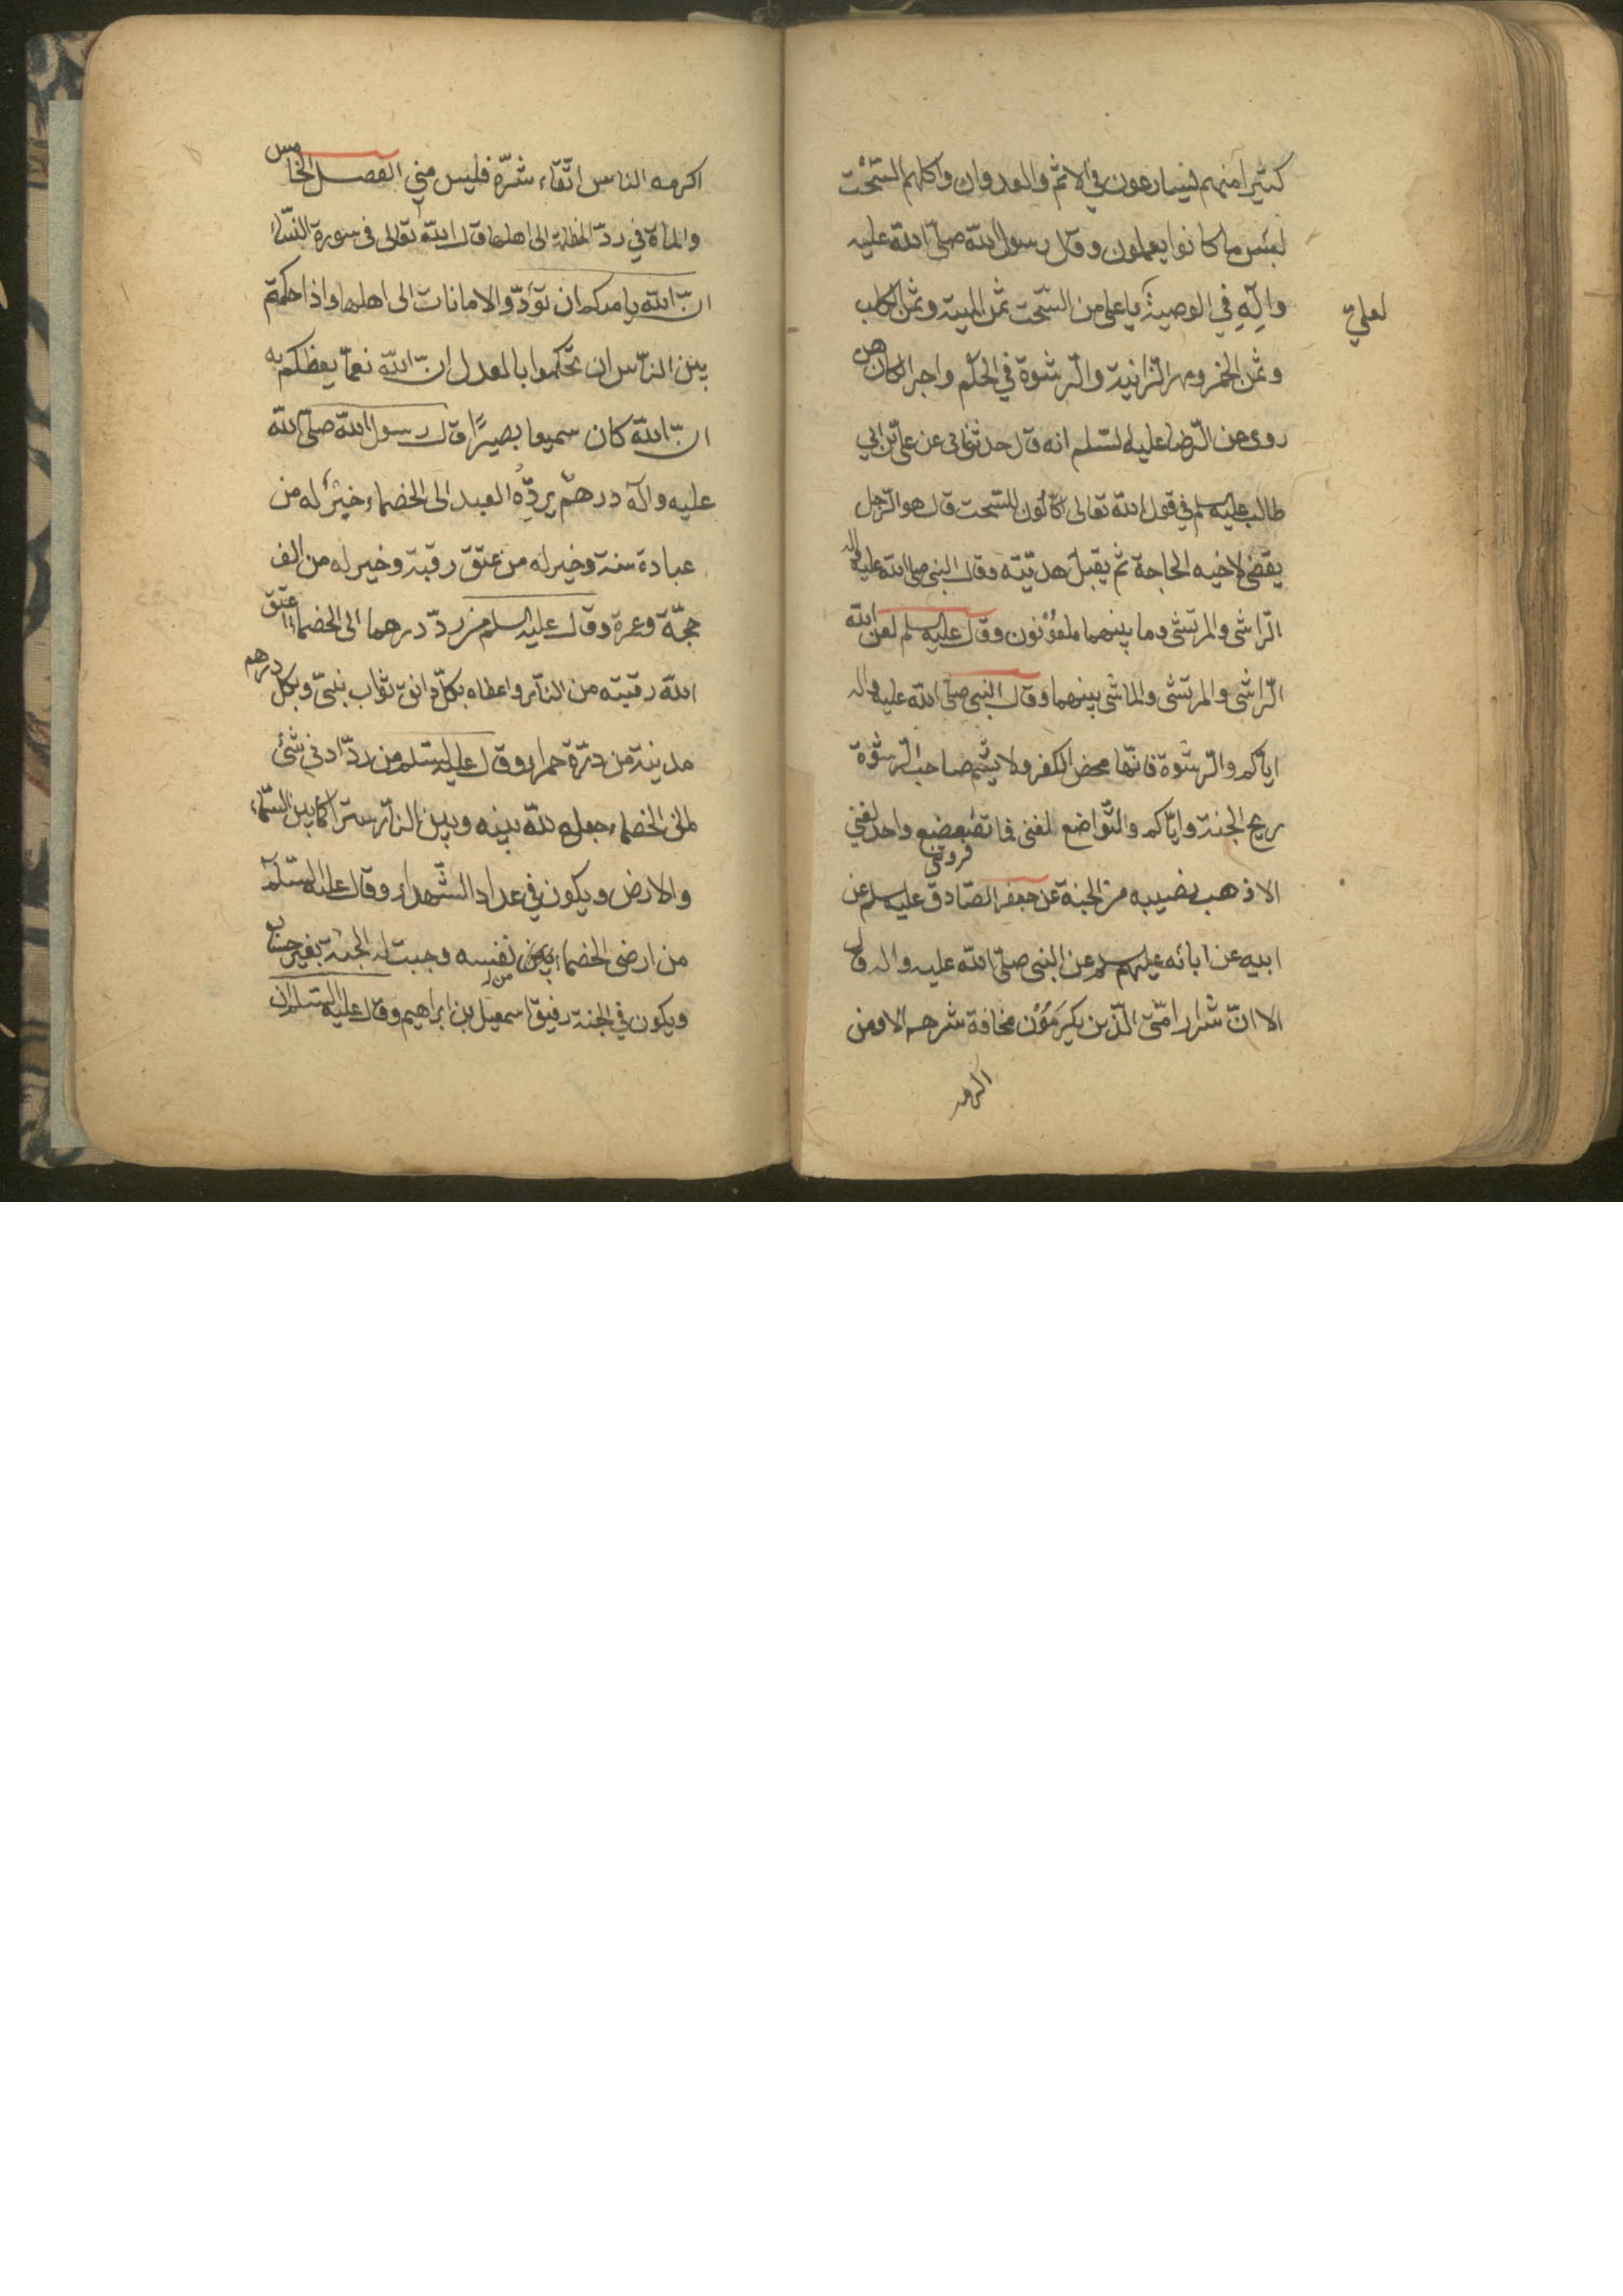 كثيرا منهم يسارعون في الاثم والعدوان واكلهم السّحْت
لبئس ما كانوا يعملون وقال رسول الله صلّى الله عليه
وآلِهِ في الوصيّة يا علي من السّحت ثمن الميتة وثمن الكلب
لعليّ
وثمن الخمر ومهر الزانية والرشوة في الحكم واجر الكاهن
روى عن الرّضا عليه السّلم انه قال حدثنا ابي عن علي بن ابي
طالب عليه سلم في قول الله تعالى اكّالون للسّحت قال هو الرّجل
يقضى لاخيه الحاجة ثم يقبل هديّته وقال النبي صلى الله عليه واله
الرّاشى والمرتشى وما بينهما ملعوُنون وقال عليه سلم لعن الله
الرّاشى والمرتشى والماشى بينهما وقال النبي صلى الله عليه واله
ايّاكم والرّشوة فانّها محض الكفر ولا يشم صاحب الرّشوة
ريح الجنة وايّاكم والتّواضع لغنى فما تضعضع واحد لغني
فروتني
الا ذهب نصيبه من الجنة عن جعفر الصّادق عليه سلم عن
ابيه عن ابائه عليهم سلم عن النبى صلّى الله عليه واله قال
الا انّ شرار امّتى الذّين يُكرَمُوْن مخافة شرهم الا ومن
اكرمه
اكرمه الناس اتّقاء شرّه فليس مني الفصل الخامس
والمائة في ردّ المظالم الى اهلها قال الله تعالى فى سورة النّساء
انّ الله يامركم ان تؤدّوا الامانات الى اهلها واذا حكمتم
بين النّاس ان تحكموا بالعدل انّ الله نعمّا يعظكم به
انّ الله كان سميعا بصيرًا قال رسول الله صلّى الله
عليه وآله درهم يردّه العبد الى الخصماء خيرٌ له من
عبادة سنة وخير له من عتق رقبة وخير له من الف
حجّة وعمرة وقال عليه السلم من ردّ درهما الى الخصماء اعتق
الله رقبته من النّار واعطاه بكلّ دانق ثواب نبيّ وبكل درهم
مدينة من درّة حمراء وقال عليه السّلم من ردّ ادنى شئ
الى الخصماء جعل الله بينه وبين النّار سترا كما بين السّماء
والارض ويكون في عداد الشّهداء وقال عليه السّلم
من ارضى الخصماء من نفسه وجبت له الجنة بغير حساب
ويكون في الجنة رفيق اسمعيل بن ابراهيم وقال عليه السّلم ان